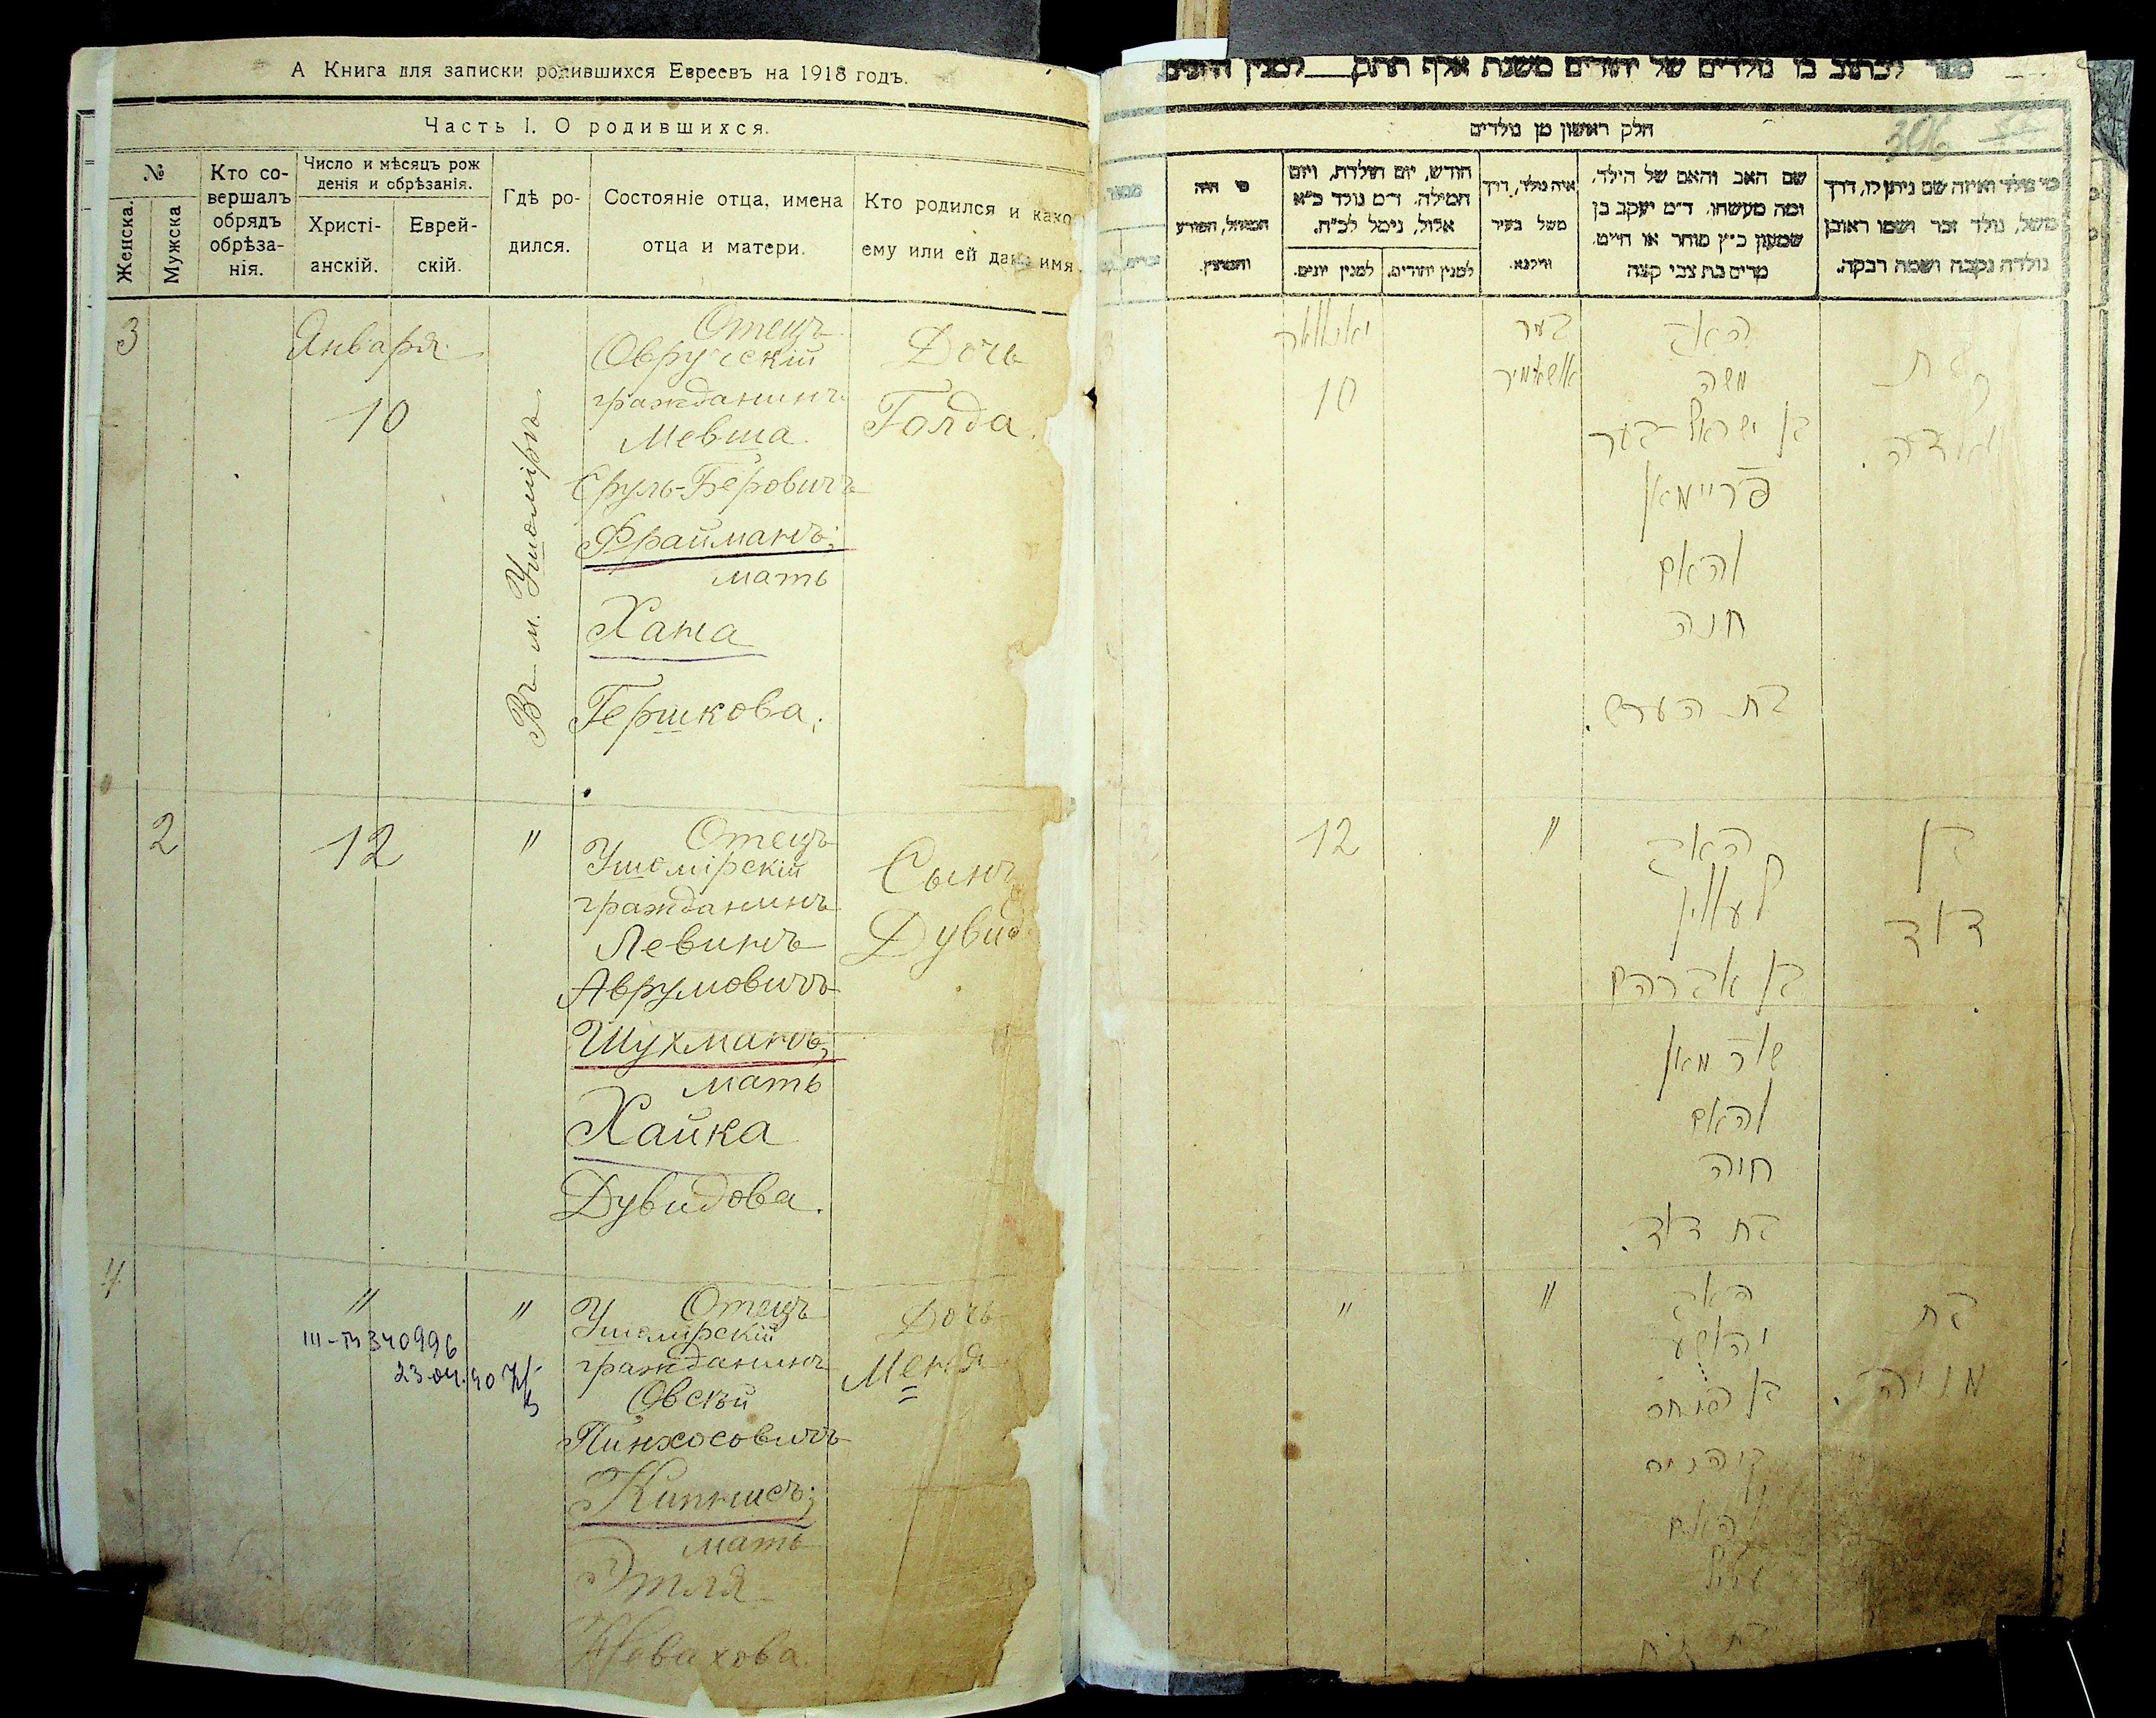 А Книга для записки родившихся Евреевъ на 1918 годъ.
Часть I. О родившихся.
№
Женска.
Мужска
Кто со-
вершалъ
обрядъ
обрѣза-
нія.
Число и мѣсяцъ рож
денія и обрѣзанія.
Христі-
анскій.
Еврей-
скій.
Гдѣ ро-
дился.
Состояніе отца, имена
отца и матери.
Кто родился и како
ему или ей дано имя.
3
Января
10
Въ м. Ушомірѣ
Отецъ
Овручскій
гражданинъ
Мевша
Сруль-Беровичъ
Фрайманъ;
мать
Хана
Гершкова.
Дочь
Голда.
2
12
"
Отецъ
Ушомірскій
гражданинъ
Левинъ
Аврумовичъ
Шухманъ;
мать
Хайка
Дувидова.
Сынъ
Дувид
4
"
III-ТЧ 340996
"
Отецъ
Ушомірскій
гражданинъ
Овсѣй
Пинхосовичъ
мать
Этля
Невахова.
Дочь
Меня
לכתוב בו נולדים של יהודים משנת אלף תתק___ למנין היונים
חלק ראשון מן נולדים
306
מי נולד ואיזה שם ניתן לו, דרך
משל, נולד זכר ושמו ראובן
נולדה נקבה ושמה רבקה.
שם האב והאם של הילד,
ומה מעשהו. ד״מ יעקב בן
שמעון כ״ץ סוחר או חייט.
מרים בת צבי קצה
איה נולד, דרך
משל בעיר
ווילנא.
חודש, יום הולדת, ויום
המילה. ד״מ נולד כ״א
אלול, נימל לכ״ח.
למנין יהודים.
למנין יונים.
מי היה
המוהל, הפורע
והמוצץ.
בת
גאלדה.
האב
משה
בן ישראל בער
פריימאן
והאם
חנה
בת הערש.
10
בן
דוד
האב
לעווין
בן אברהם
שוחמאן
והאם
חיה
בת דוד.
"
12
בת
מניה.
האב
יהושע
בן פנחס
והאם
"
"